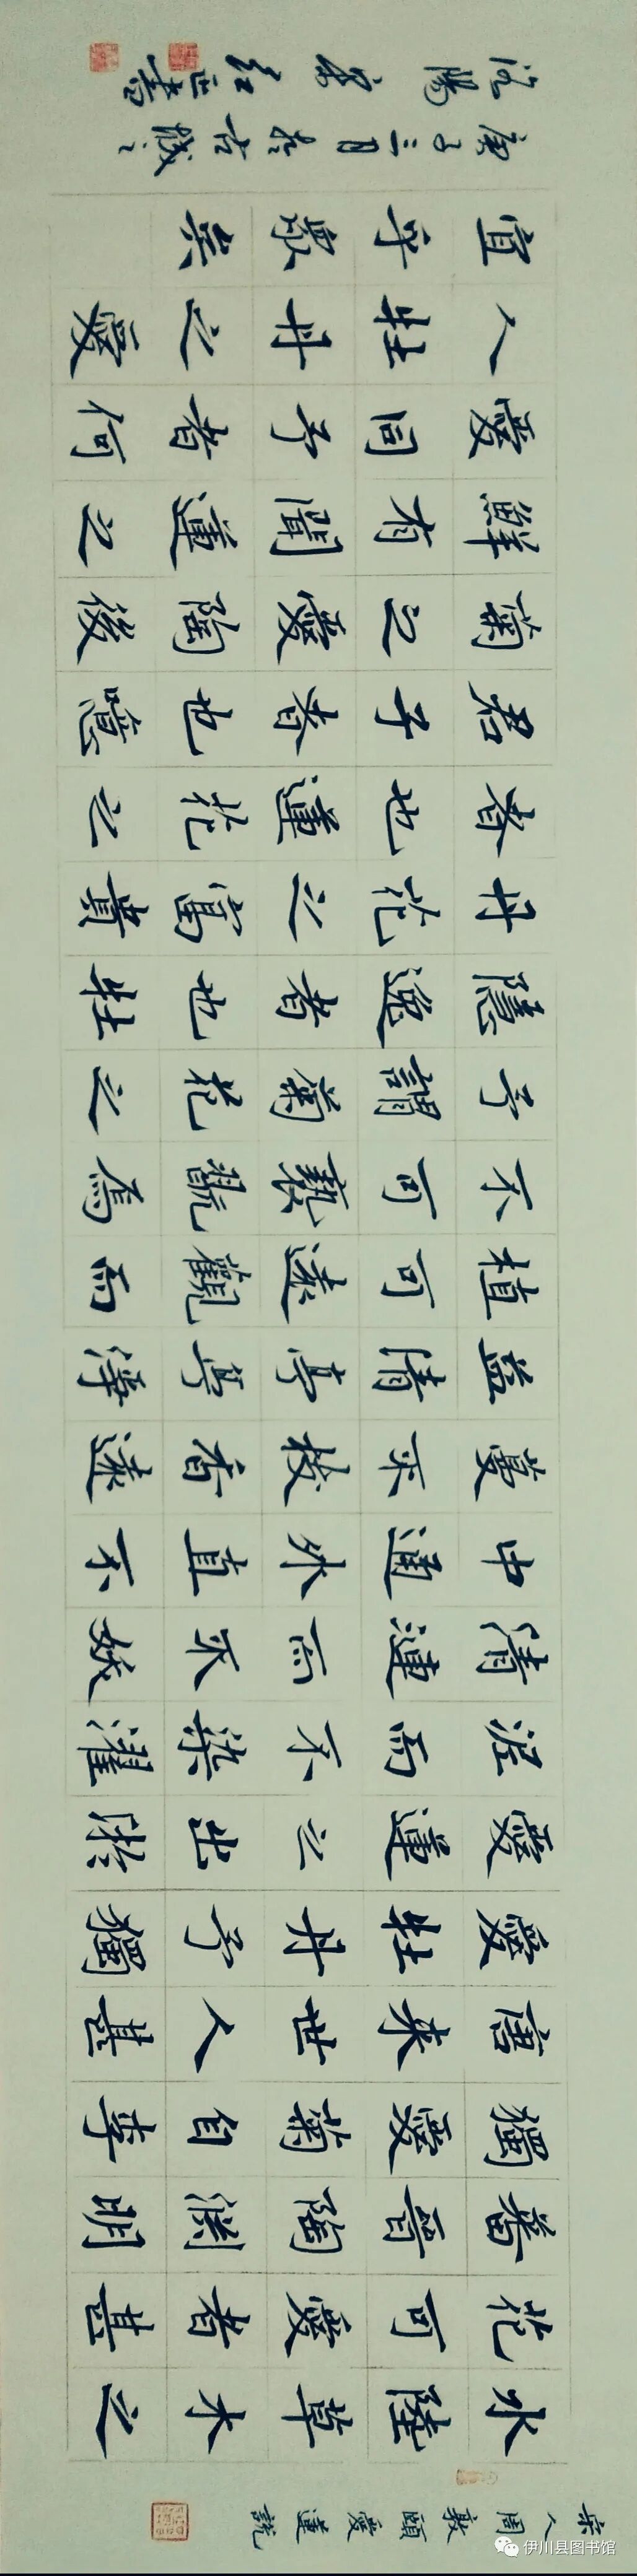 宋人周敦頤愛蓮說
水陸草木之
花可愛者甚
蕃晉陶渊明
獨愛菊自李
唐来世人甚
愛牡丹予獨
愛蓮之出淤
泥而不染濯
清漣而不妖
中通外直不
蔓不枝香遠
益清亭亭淨
植可遠觀而
不可褻翫焉
予謂菊花之
隱逸者也牡
丹花之富貴
者也蓮花之
君子者也噫
菊之愛陶後
鮮有聞蓮之
愛同予者何
人牡丹之愛
宜乎眾矣
庚子三月於古
洛陽宋红正書
伊川县图书馆